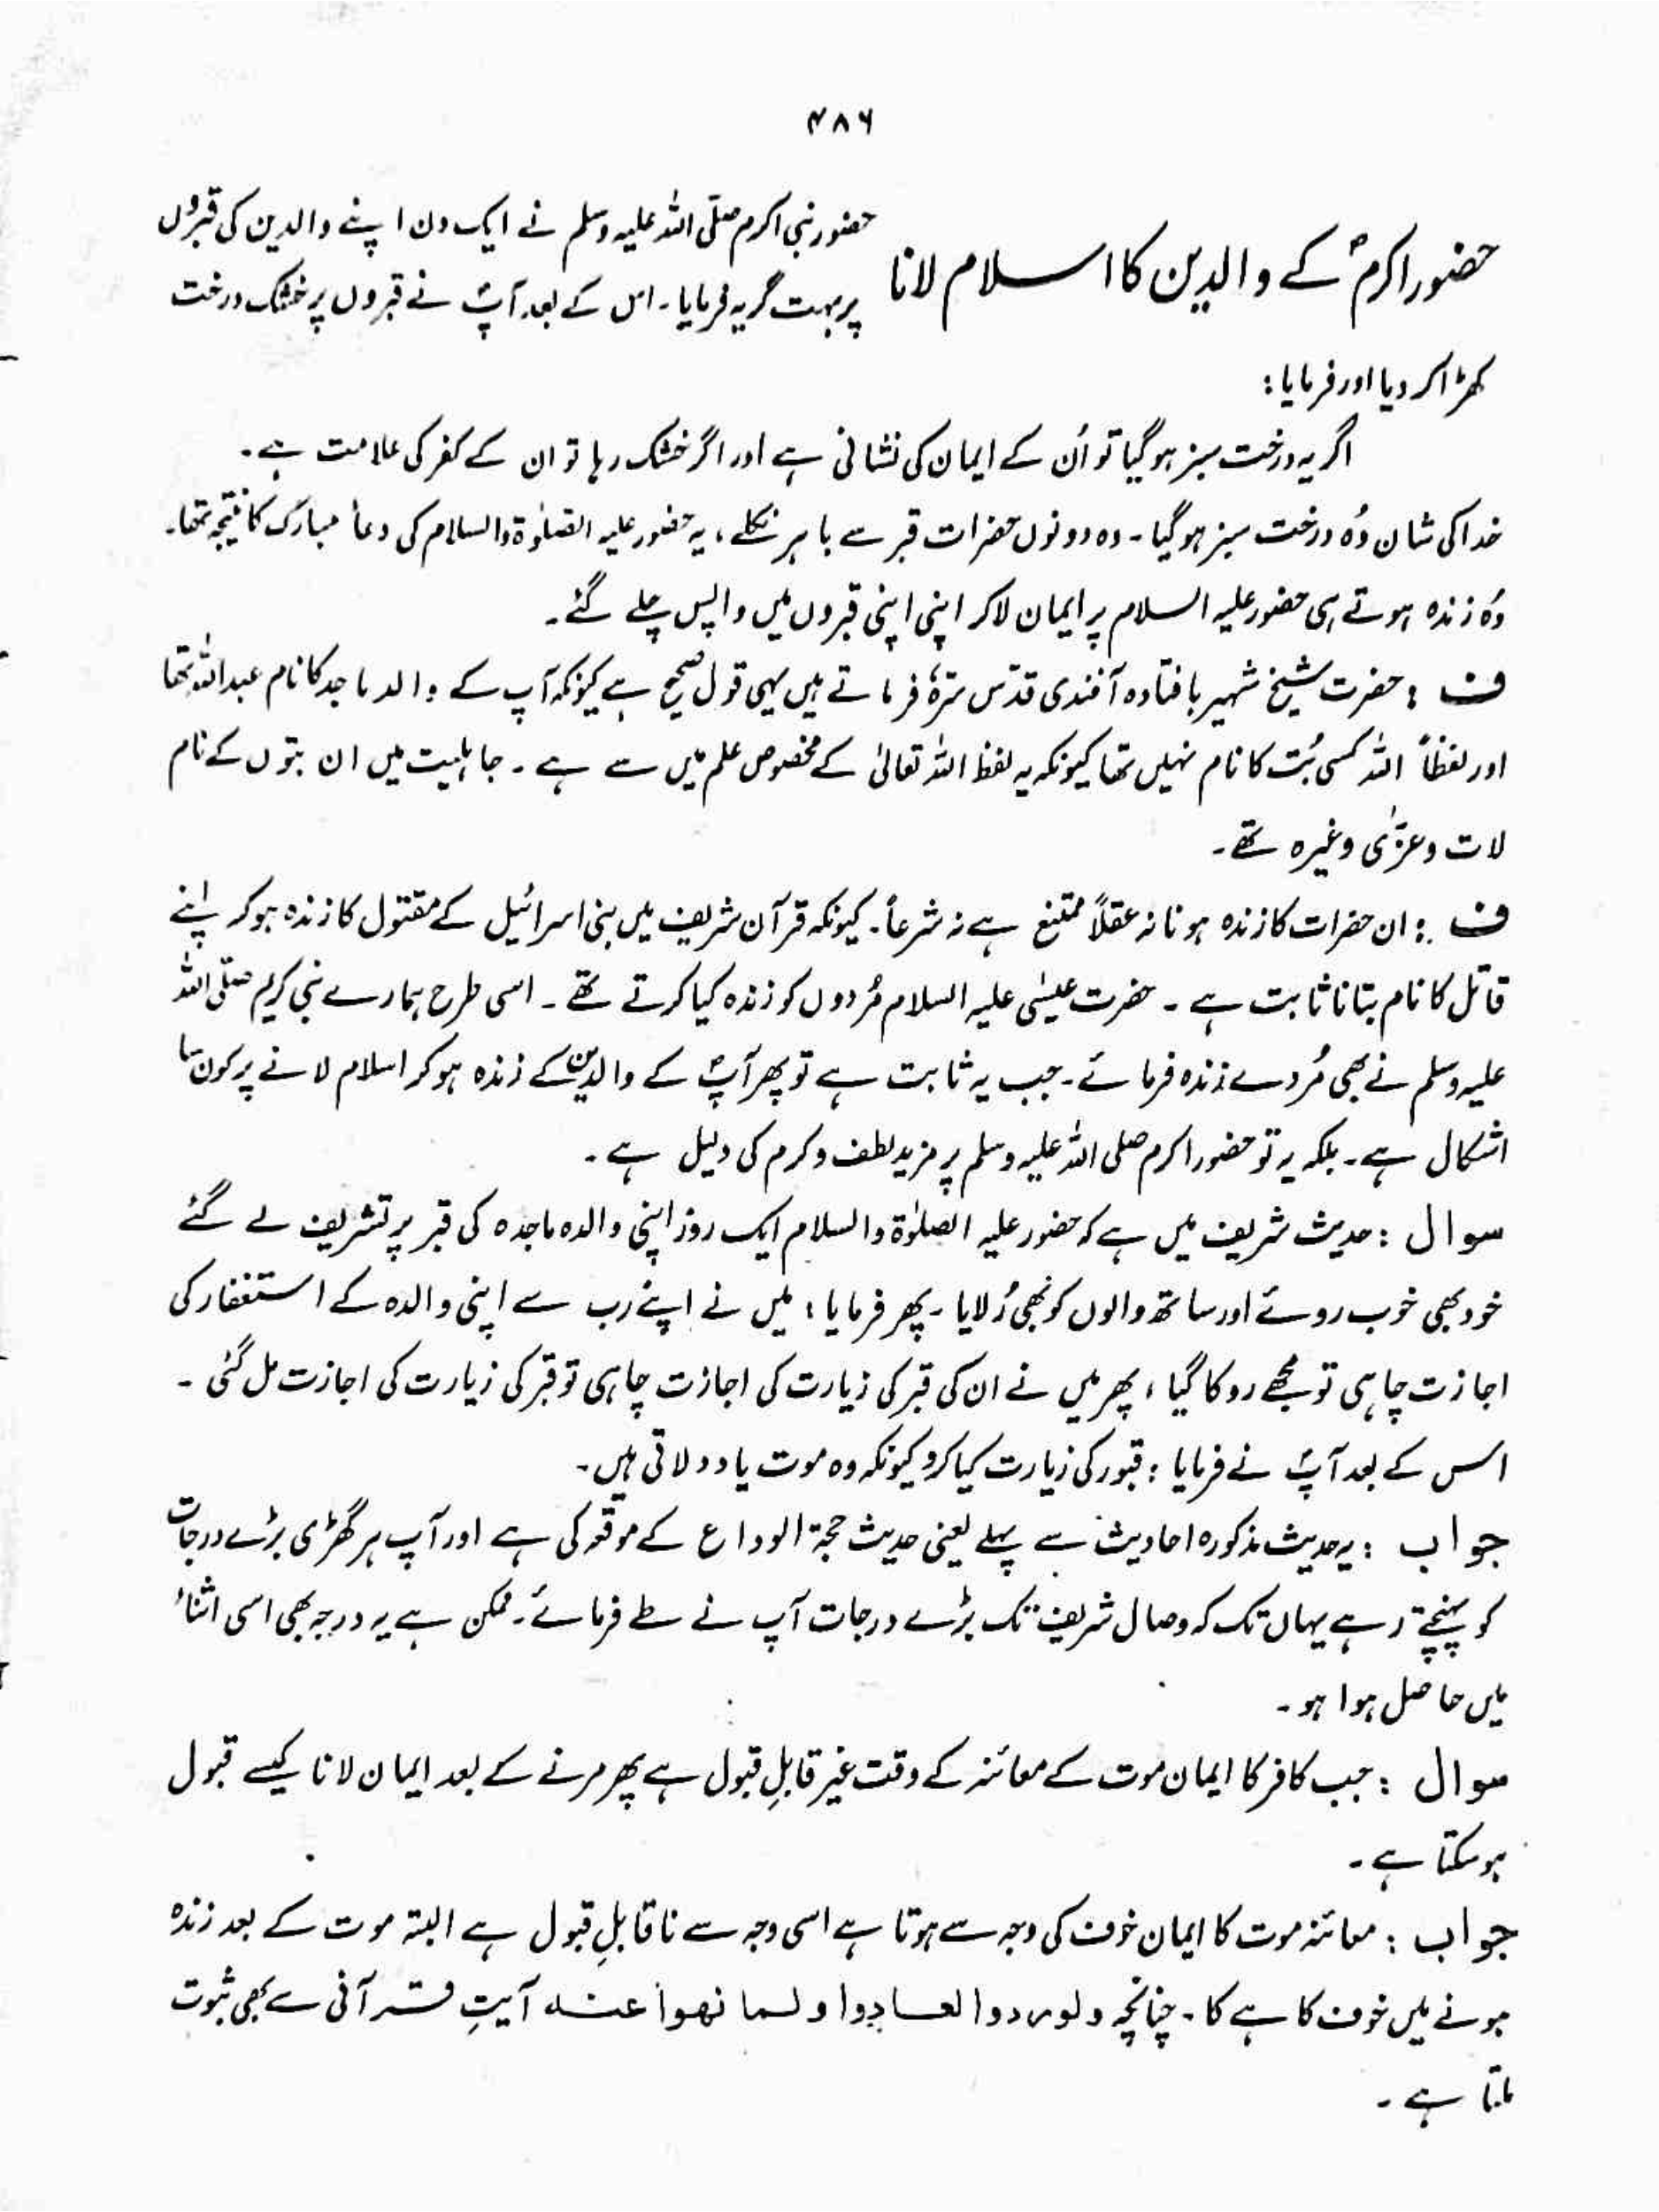 ۴۸۶
حضور اکرمؐ کے والدین کا اسلام لانا
حضور نبی اکرم صلّی اللہ علیہ وسلم نے ایک دن اپنے والدین کی قبروں
پر بہت گریہ فرمایا۔ اس کے بعد آپؐ نے قبروں پر خشک درخت
کھڑا کر دیا اور فرمایا:
اگر یہ درخت سبز ہوگیا تو اُن کے ایمان کی نشانی ہے اور اگر خشک رہا تو ان کے کفر کی علامت ہے۔
خدا کی شان وُہ درخت سبز ہوگیا۔ وہ دونوں حضرات قبر سے باہر نکلے، یہ حضور علیہ الصلوٰۃ والسلام کی دعأ مبارک کا نتیجہ تھا۔
وُہ زندہ ہوتے ہی حضور علیہ السلام پر ایمان لاکر اپنی اپنی قبروں میں واپس چلے گئے۔
ف : حضرت شیخ شہیر بافتادہ آفندی قدّس سرّہٗ فرماتے ہیں یہی قول صحیح ہے کیونکہ آپ کے والد ماجد کا نام عبداللہ تھا
اور لفظاً اللہ کسی بُت کا نام نہیں تھا کیونکہ یہ لفظ اللہ تعالیٰ کے مخصوص علم میں سے ہے۔ جاہلیت میں ان بتوں کے نام
لات و عزّٰی وغیرہ تھے۔
ف : ان حضرات کا زندہ ہونا نہ عقلاً ممتنع ہے نہ شرعاً۔ کیونکہ قرآن شریف میں بنی اسرائیل کے مقتول کا زندہ ہوکر اپنے
قاتل کا نام بتانا ثابت ہے۔ حضرت عیسٰی علیہ السلام مُردوں کو زندہ کیا کرتے تھے۔ اسی طرح ہمارے نبی کریم صلّی اللہ
علیہ وسلم نے بھی مُردے زندہ فرمائے۔ جب یہ ثابت ہے تو پھر آپؐ کے والدین کے زندہ ہوکر اسلام لانے پر کون سا
اشکال ہے۔ بلکہ یہ تو حضور اکرم صلی اللہ علیہ وسلم پر مزید لطف و کرم کی دلیل ہے۔
سوال : حدیث شریف میں ہے کہ حضور علیہ الصلوٰۃ والسلام ایک روز اپنی والدہ ماجدہ کی قبر پر تشریف لے گئے
خود بھی خوب روئے اور ساتھ والوں کو بھی رُلایا۔ پھر فرمایا: میں نے اپنے رب سے اپنی والدہ کے استغفار کی
اجازت چاہی تو مجھے روکا گیا، پھر میں نے ان کی قبر کی زیارت کی اجازت چاہی تو قبر کی زیارت کی اجازت مل گئی۔
اس کے بعد آپؐ نے فرمایا : قبور کی زیارت کیا کرو کیونکہ وہ موت یاد دلاتی ہیں۔
جواب : یہ حدیث مذکورہ احادیث سے پہلے یعنی حدیث حجۃ الوداع کے موقعہ کی ہے اور آپ ہر گھڑی بڑے درجات
کو پہنچتے رہے یہاں تک کہ وصال شریف تک بڑے درجات آپ نے طے فرمائے۔ ممکن ہے یہ درجہ بھی اسی اثناء
میں حاصل ہوا ہو۔
سوال : جب کافر کا ایمان موت کے معائنہ کے وقت غیر قابلِ قبول ہے پھر مرنے کے بعد ایمان لانا کیسے قبول
ہوسکتا ہے۔
جواب : معائنۂ موت کا ایمان خوف کی وجہ سے ہوتا ہے اسی وجہ سے ناقابلِ قبول ہے البتہ موت کے بعد زندہ
ہونے میں خوف کاہے کا۔ چنانچہ ولو ردوا لعادوا ولما نھوا عنہ آیتِ قرآنی سے بھی ثبوت
ملتا ہے۔